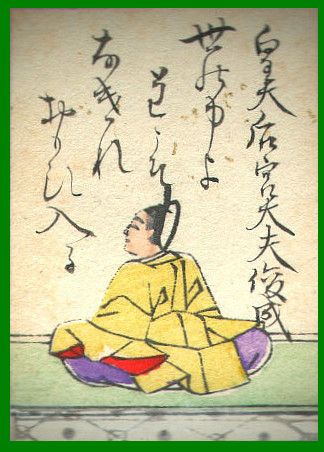 皇太后宮大夫俊成
世の中よ
道こそ
なけれ
おもひ入る